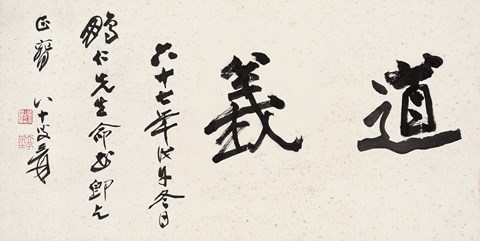 道義
六十七年戊午冬日
鵬仁先生命書即乞
正腕 八十叟爰